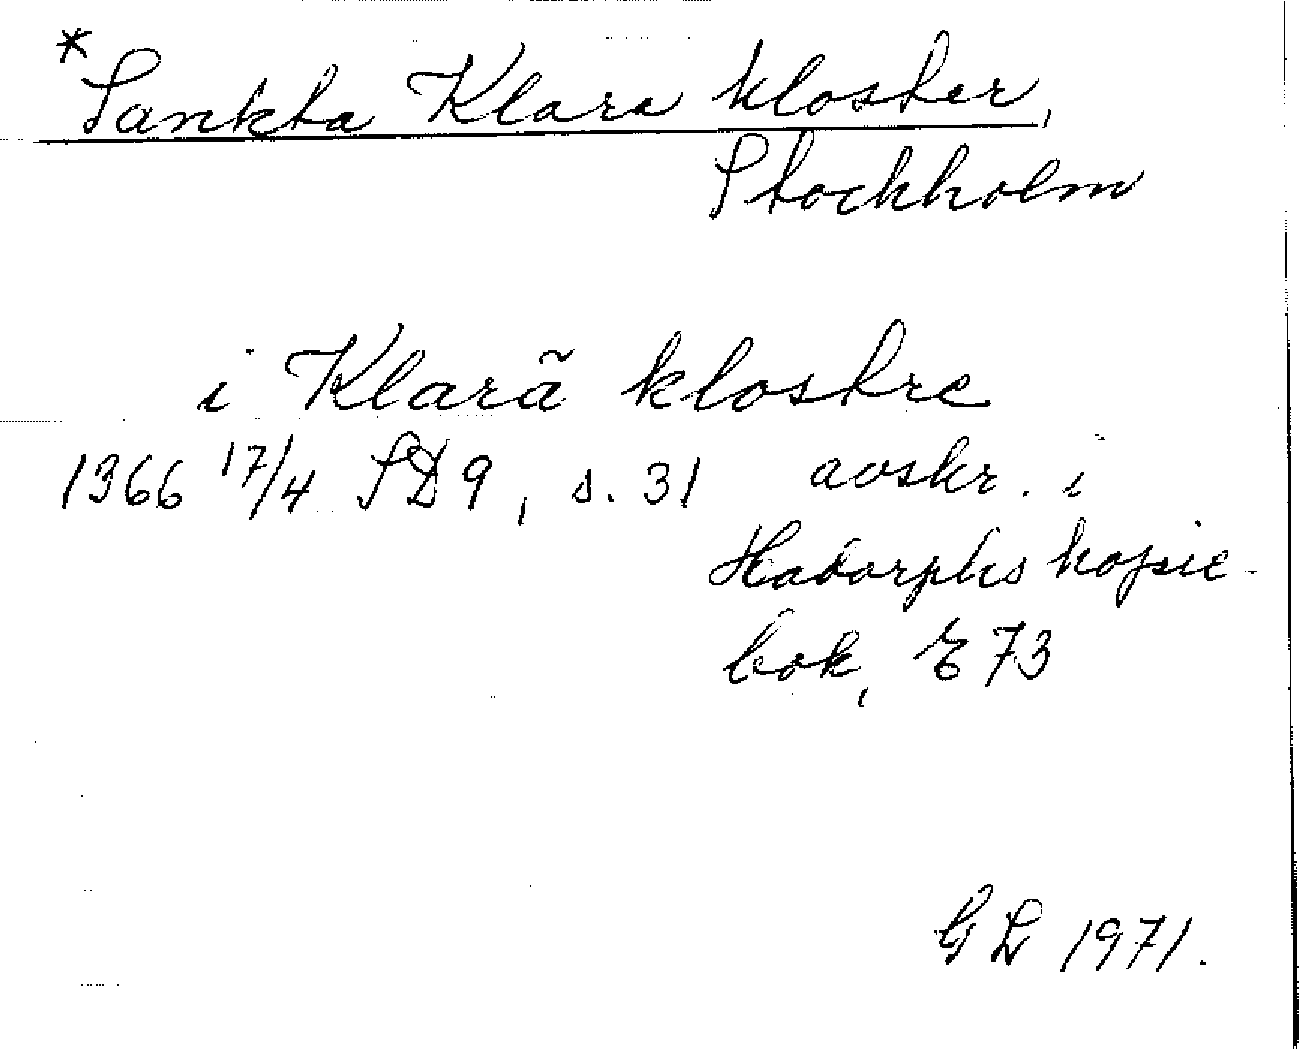 *Sankta Klara kloster,
Stockholm
i Klarã klostre
1366 17/4 SD9, s. 31 avskr. i
Hadorphs kopie-
bok, E 73
GL 1971.